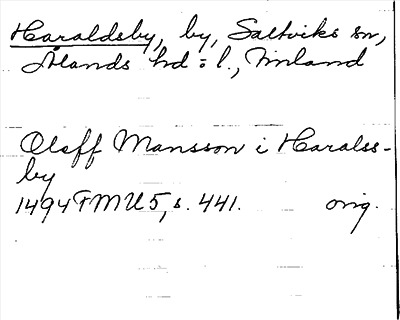 Haraldsby, by, Saltviks sn,
Ålands hd = l., Finland
Oleff Mansson i Haralss-
by
1494 FMU 5, s. 441. orig.